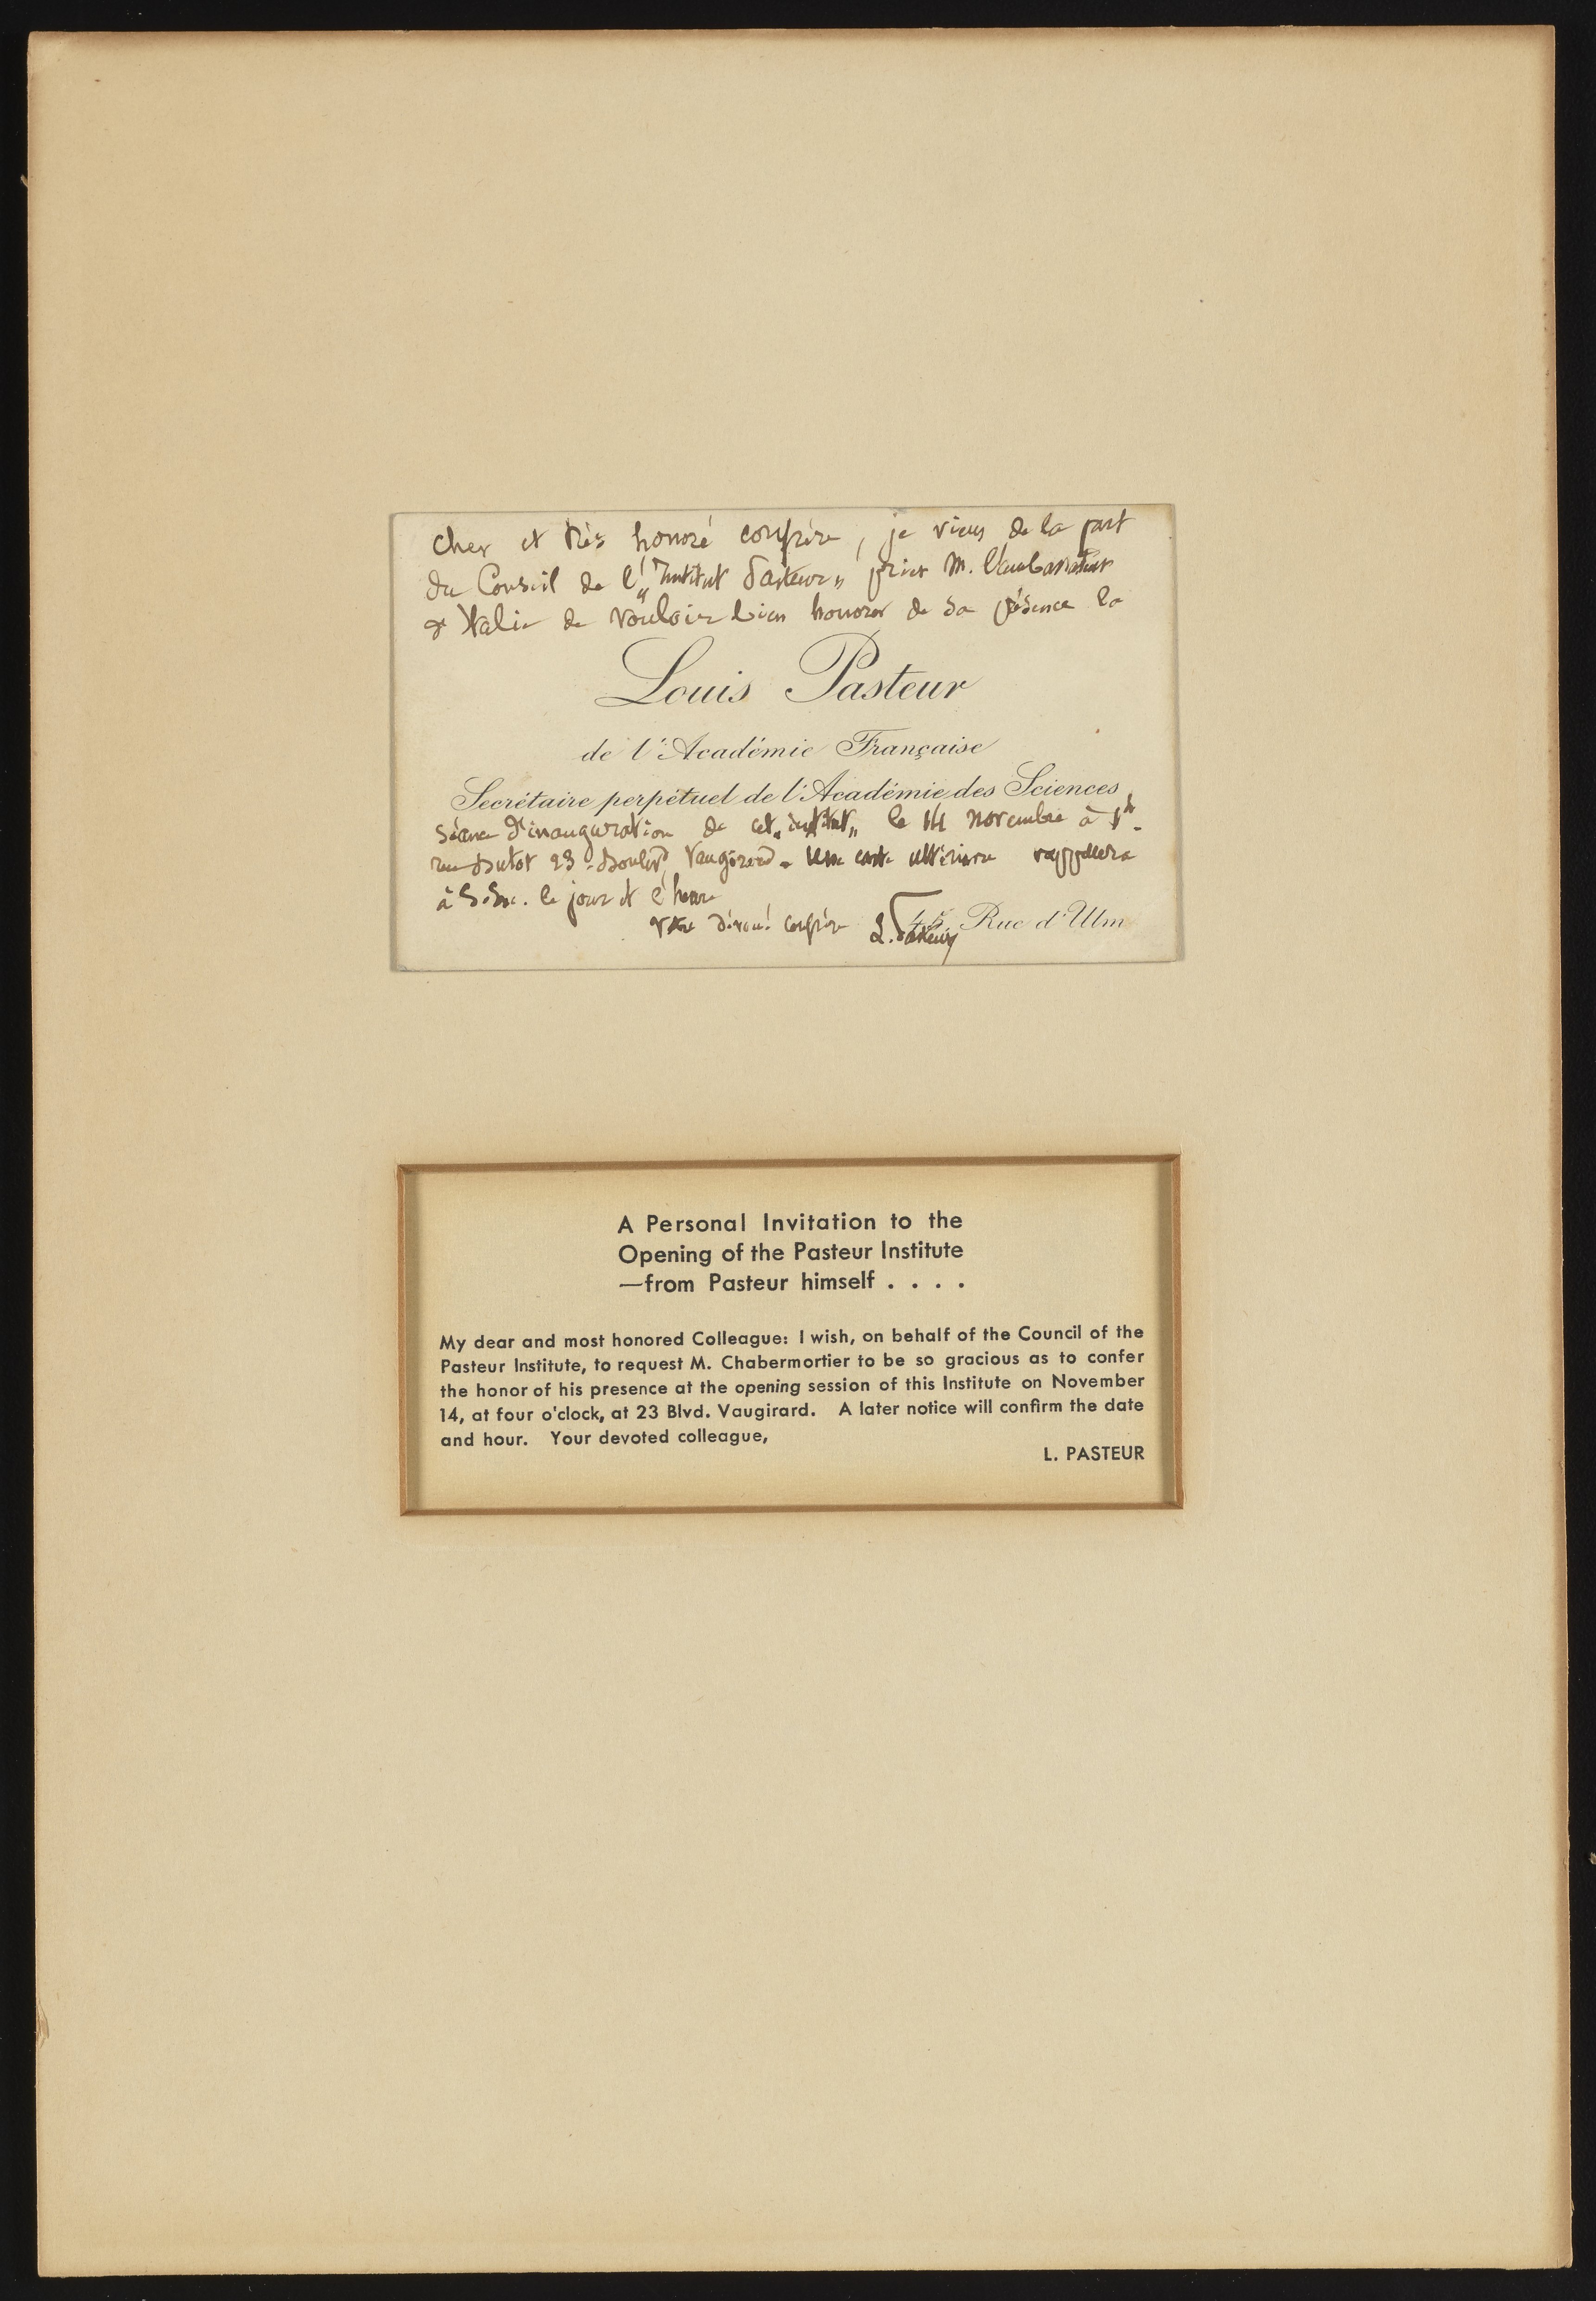 Cher et très honoré confrère, je viens de la part
du Conseil de l'„Institut Pasteur„ prier M. l'ambassadeur
d'Italie de vouloir bien honorer de sa présence la
Louis Pasteur
de l'Académie Française
Secrétaire perpétuel de l'Académie des Sciences
séance d'inauguration de cet „institut„ le 14 novembre à 1h.
rue Dutot 23 - Boulevd Vaugirard - Une carte ultérieure rappellera
à S. Exc. le jour et l'heure
votre dévoué confrère L. Pasteur
45, Rue d'Ulm
A Personal Invitation to the
Opening of the Pasteur Institute
—from Pasteur himself . . . .
My dear and most honored Colleague: I wish, on behalf of the Council of the
Pasteur Institute, to request M. Chabermortier to be so gracious as to confer
the honor of his presence at the opening session of this Institute on November
14, at four o'clock, at 23 Blvd. Vaugirard. A later notice will confirm the date
and hour. Your devoted colleague,
L. PASTEUR